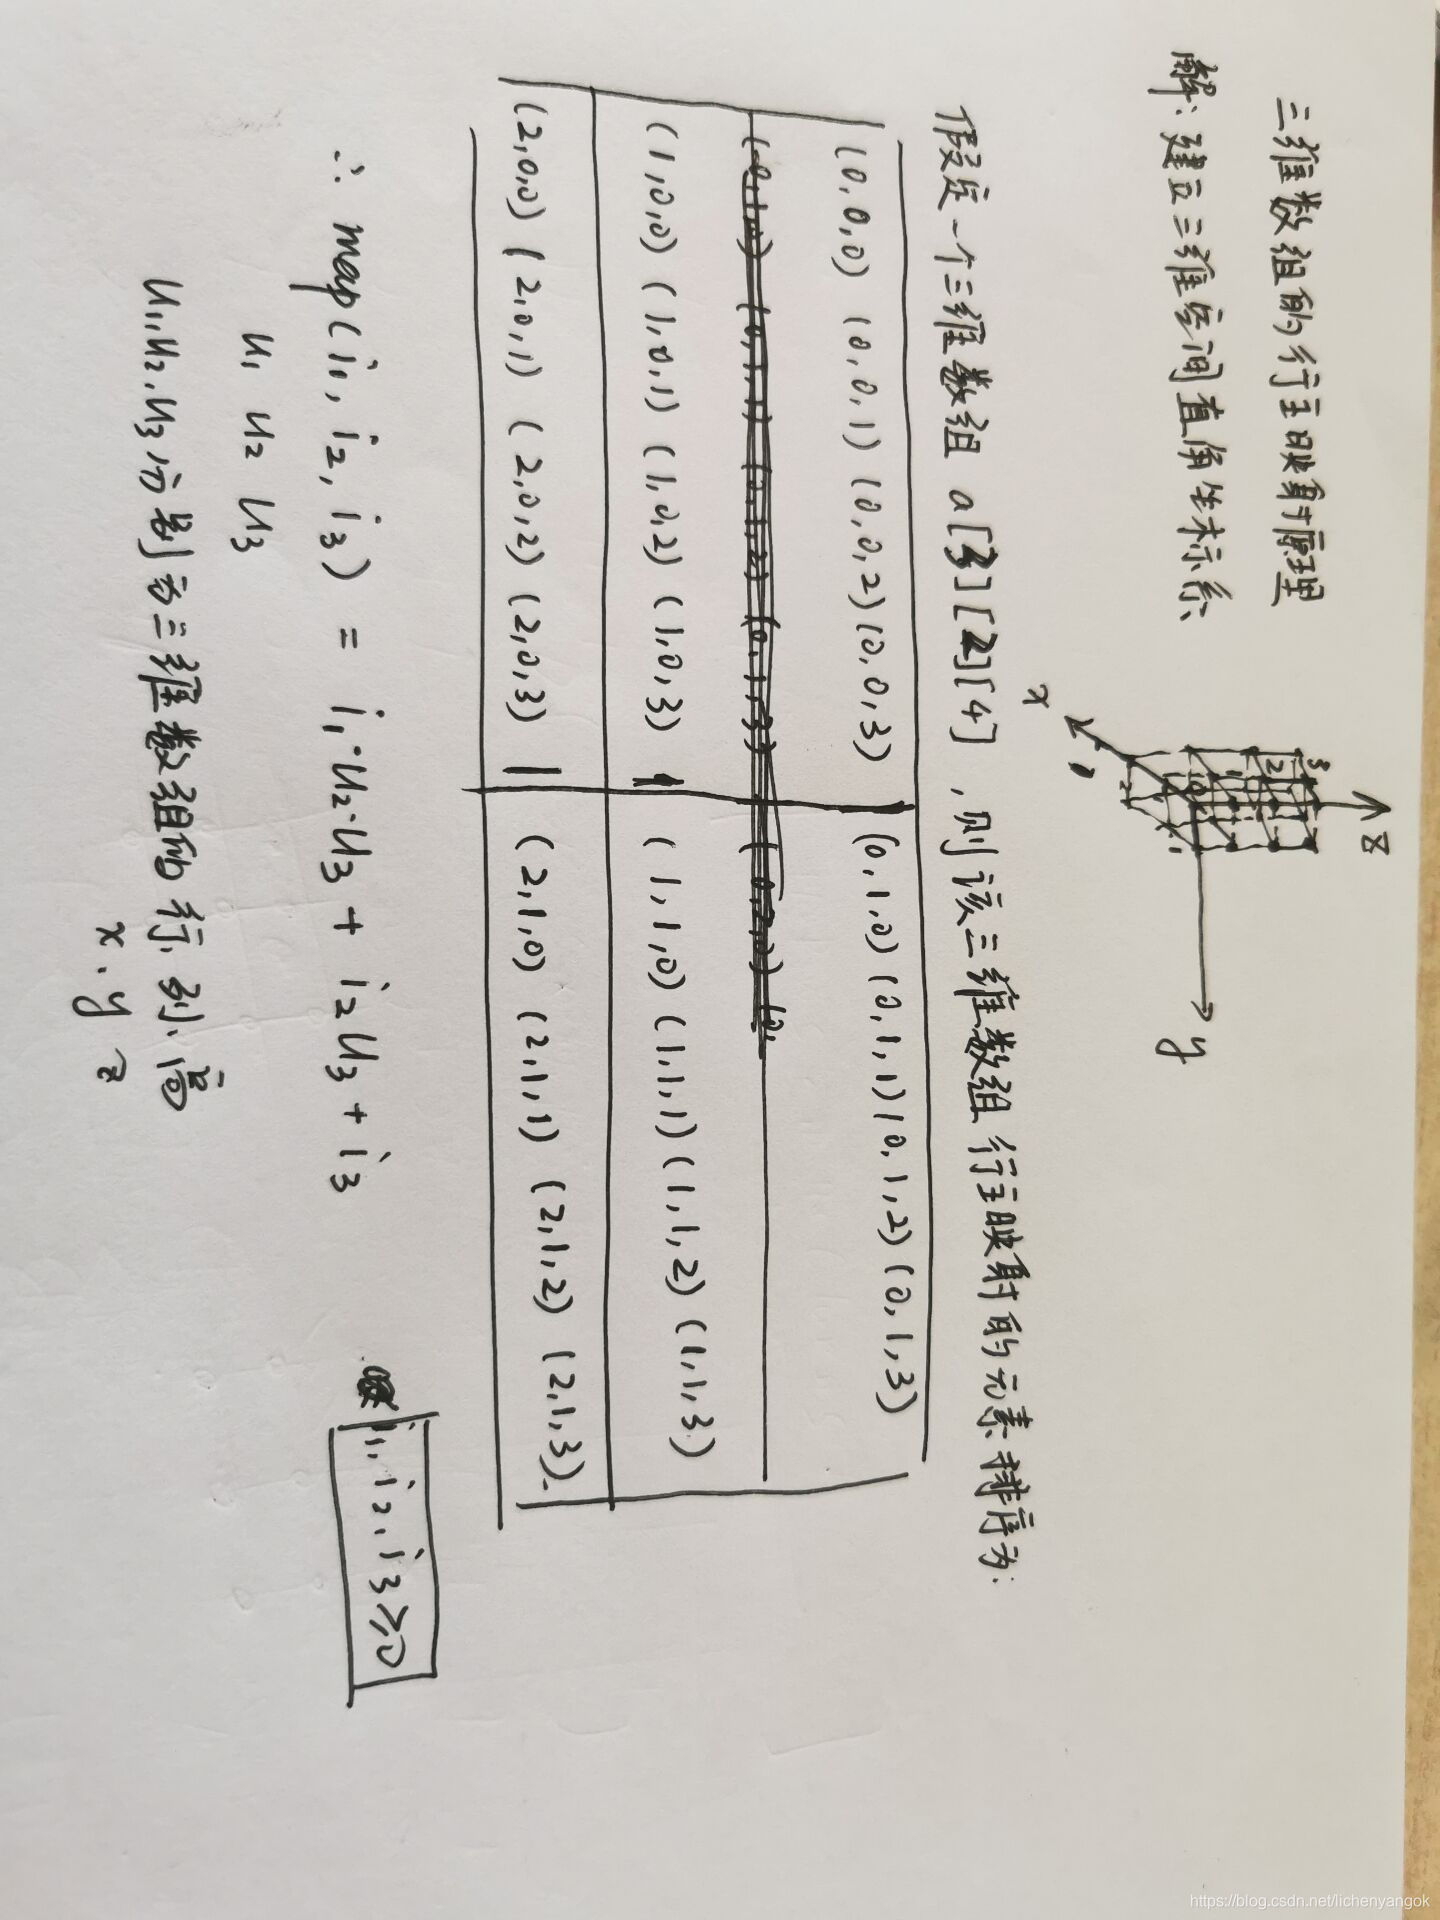 三维数组的行主映射原理
解:建立三维空间直角坐标系
z
3
2
1
0
1
2
1
x
y
假定一个三维数组 a[3][2][4],则该三维数组行主映射的元素排序为:
(0,0,0) (0,0,1) (0,0,2) (0,0,3) (0,1,0) (0,1,1) (0,1,2) (0,1,3)
(1,0,0) (1,0,1) (1,0,2) (1,0,3) (1,1,0) (1,1,1) (1,1,2) (1,1,3)
(2,0,0) (2,0,1) (2,0,2) (2,0,3) (2,1,0) (2,1,1) (2,1,2) (2,1,3).
∴ map(i₁, i₂, i₃) = i₁·u₂·u₃ + i₂u₃ + i₃
i₁, i₂, i₃ ≥ 0
u₁ u₂ u₃
u₁,u₂,u₃分别为三维数组的行、列、高
x、y z
https://blog.csdn.net/lichenyangok